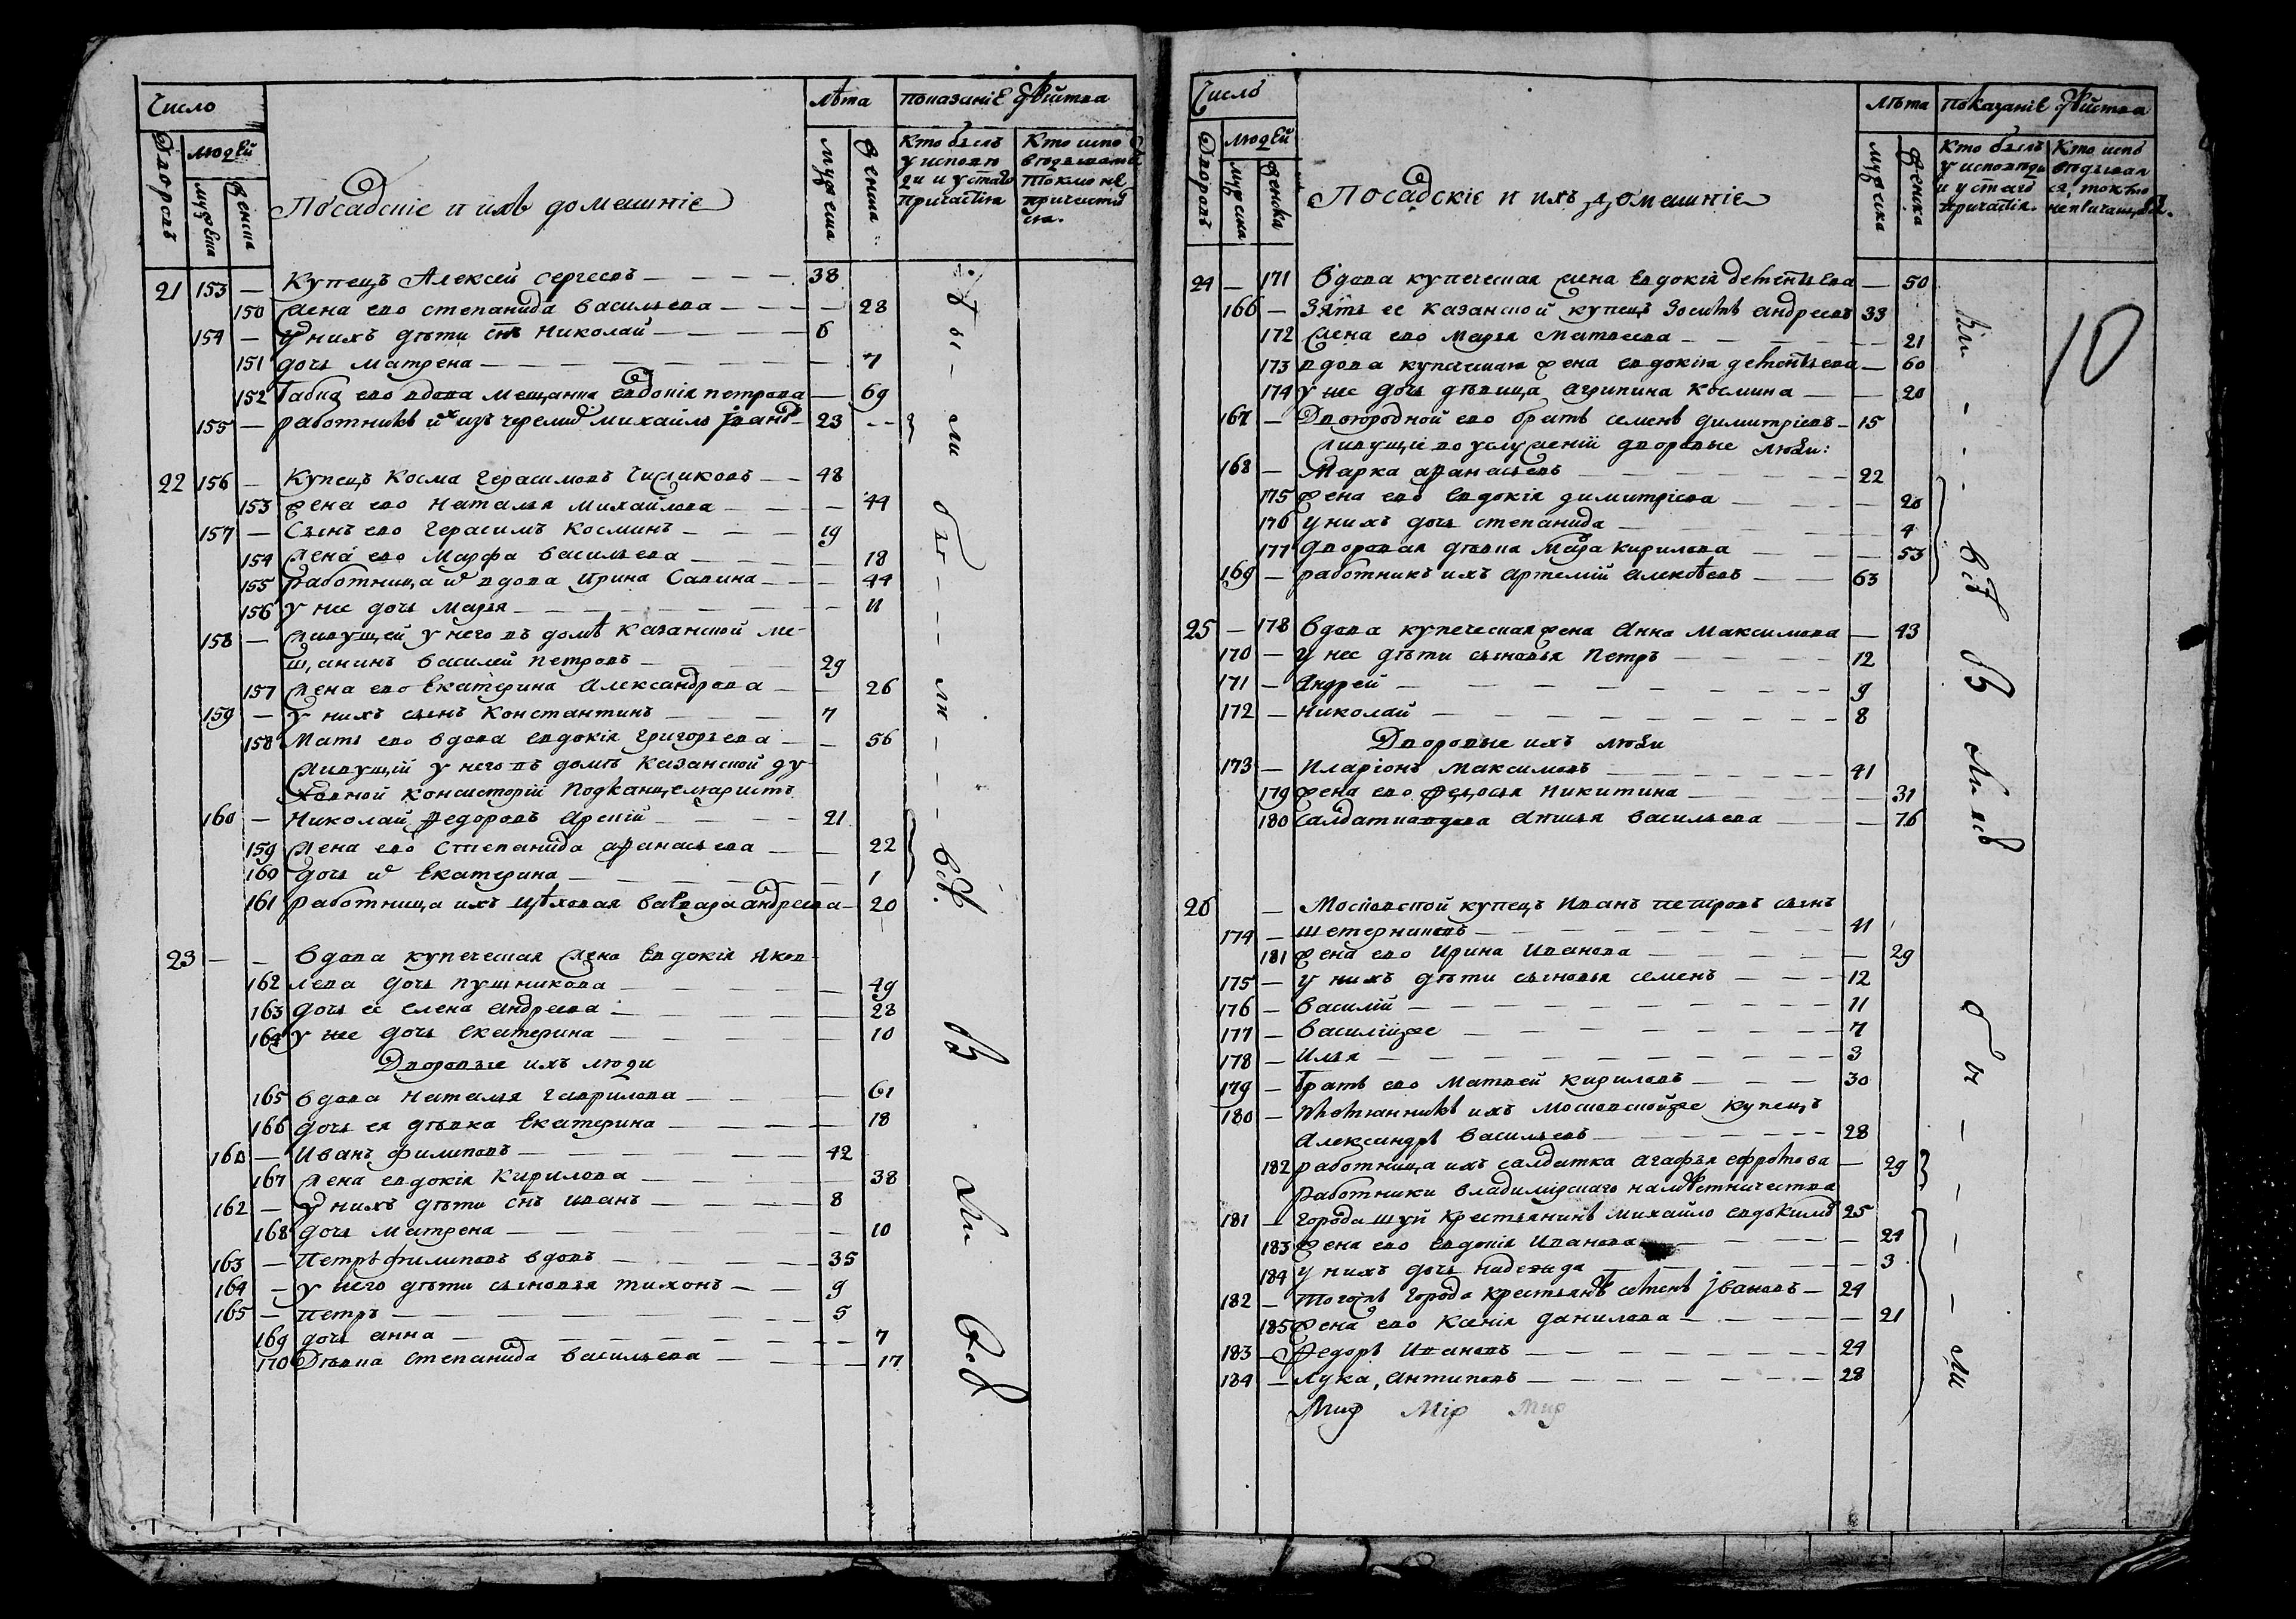 Число
Лѣта
Показаніе дѣйства
Дворовъ
Людей
Мужеска
Женска
Мужеска
Женска
Кто былъ
у испове
ди и святаго
причастія
Кто испо
ведывался
токмо не
причасти
ся.
Посадскіе и ихъ домашніе
21 153 — Купецъ Алексей Сергеевъ — 38
150 Жена ево Степанида Васильева — 28
154 — У нихъ дѣти снъ Николай — 6
151 дочь Матрена — 7
152 Бабка ево вдова мещанка Евдокія Петрова — 69
155 — работникъ ихъ изъ Михайло Иванъ — 23
22 156 — Купецъ Косма Герасимовъ — 48
153 Жена ево Наталья Михайлова — 44
157 — Сынъ ево Герасимъ Косминъ — 19
154 Жена ево Марфа Васильева — 18
155 Работница их вдова Ирина Савина — 44
156 У нее дочь Марья — 11
158 — Живущей у него въ домѣ казанской ме-
щанинъ Василей Петровъ — 29
157 Жена ево Екатерина Александрова — 26
159 — У нихъ сынъ Константинъ — 7
158 Мать ево вдова Евдокія Григорьева — 56
Живущій у него въ домѣ Казанской ду
ховной консисторіи подканцеляристъ
160 — Николай Федоровъ — 21
159 Жена ево Степанида Афанасьева — 22
160 дочь их Екатерина — 1
161 Работница ихъ цѣховая Варвара Андреева — 20
23 — — Вдова купеческая жена Евдокія Яков-
162 лева дочь Пушникова — 49
163 Дочь ее Елена Андреева — 28
164 У нее дочь Екатерина — 10
Дворовые ихъ люди
165 Вдова Наталья Гаврилова — 61
166 Дочь ея дѣвка Екатерина — 18
161 — Иванъ Филиповъ — 42
167 Жена Евдокія Кирилова — 38
162 — У нихъ дѣти снъ Иванъ — 8
168 дочь Матрена — 10
163 — Петръ Филиповъ вдовъ — 35
164 — У него дѣти сыновья Тихонъ — 9
165 — Петръ — 5
169 дочь Анна — 7
170 Дѣвка Степанида Васильева — 17
Число
Лѣта
Показаніе дѣйства
Дворовъ
Людей
Мужеска
Женска
Мужеска
Женска
Кто былъ
у исповѣди
и святаго
причастія.
Кто испо
ведывал
ся, токмо
непричащался.
Посадскіе и ихъ домашніе
10
24 — 171 Вдова купеческая жена Евдокія Дементьева — 50
166 — Зять ее казанской купецъ Зосимъ Андреевъ 33
172 Жена ево Марья Матвеева — 21
173 Вдова купеческая жена Евдокія Дементьева — 60
174 У нее дочь дѣвица Агрипина Космина — 20
167 — Двоюродной ево братъ Семенъ Димитріевъ — 15
Живущіе во услуженіи дворовые люди:
168 — Марка Афанасьевъ — 22
175 Жена ево Евдокія Димитріева — 20
176 У нихъ дочь Степанида — 4
177 Дворовая дѣвка Марѳа Кирилова — 53
169 — Работникъ ихъ Артемій Алексѣевъ — 63
25 — 178 Вдова купеческая жена Анна Максимова — 43
170 — У нее дѣти сыновья Петръ — 12
171 — Андрей — 9
172 — Николай — 8
Дворовые ихъ люди
173 — Иларіонъ Максимовъ — 41
179 Жена ево Федосья Никитина — 31
180 Салдатка вдова Васильева — 76
26 — Московской купецъ Иванъ Петровъ сынъ
174 — Шетерниковъ — 41
181 Жена ево Ирина Иванова — 29
175 — У нихъ дѣти сыновья Семенъ — 12
176 — Василій — 11
177 — Василійже — 7
178 — Илья — 3
179 — Братъ ево Матвей Кириловъ — 30
180 — ихъ московскойже купецъ
Александръ Васильевъ — 28
182 Работница ихъ салдатка Агафья Ефремова — 29
Работники Владимірскаго намѣстничества
181 — города Шуи крестьянинъ Михайло Евдокимовъ 25
183 Жена ево Евдокія Иванова — 24
184 У нихъ дочь Надежда — 3
182 — Тогожъ города крестьянинъ Семенъ Ивановъ — 24
185 Жена ево Ксенія Данилова — 21
183 — Федоръ Ивановъ — 24
184 — Лука Антиповъ — 28
Мир Мір Мир